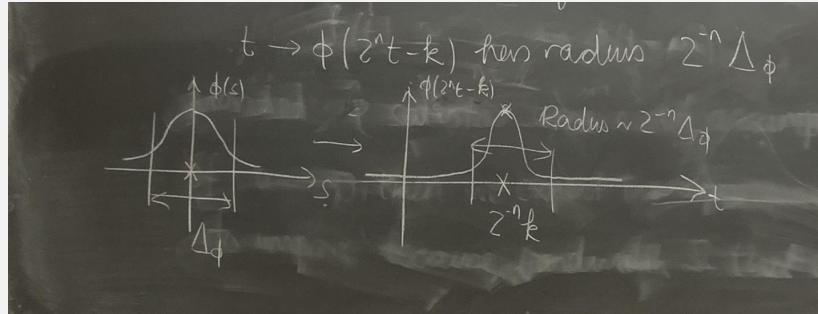 t → ϕ(2ⁿt-k) has radius 2⁻ⁿ Δ_ϕ
ϕ(s)
ϕ(2ⁿt-k)
Radius ~ 2⁻ⁿΔ_ϕ
→
s
t
2⁻ⁿk
Δ_ϕ